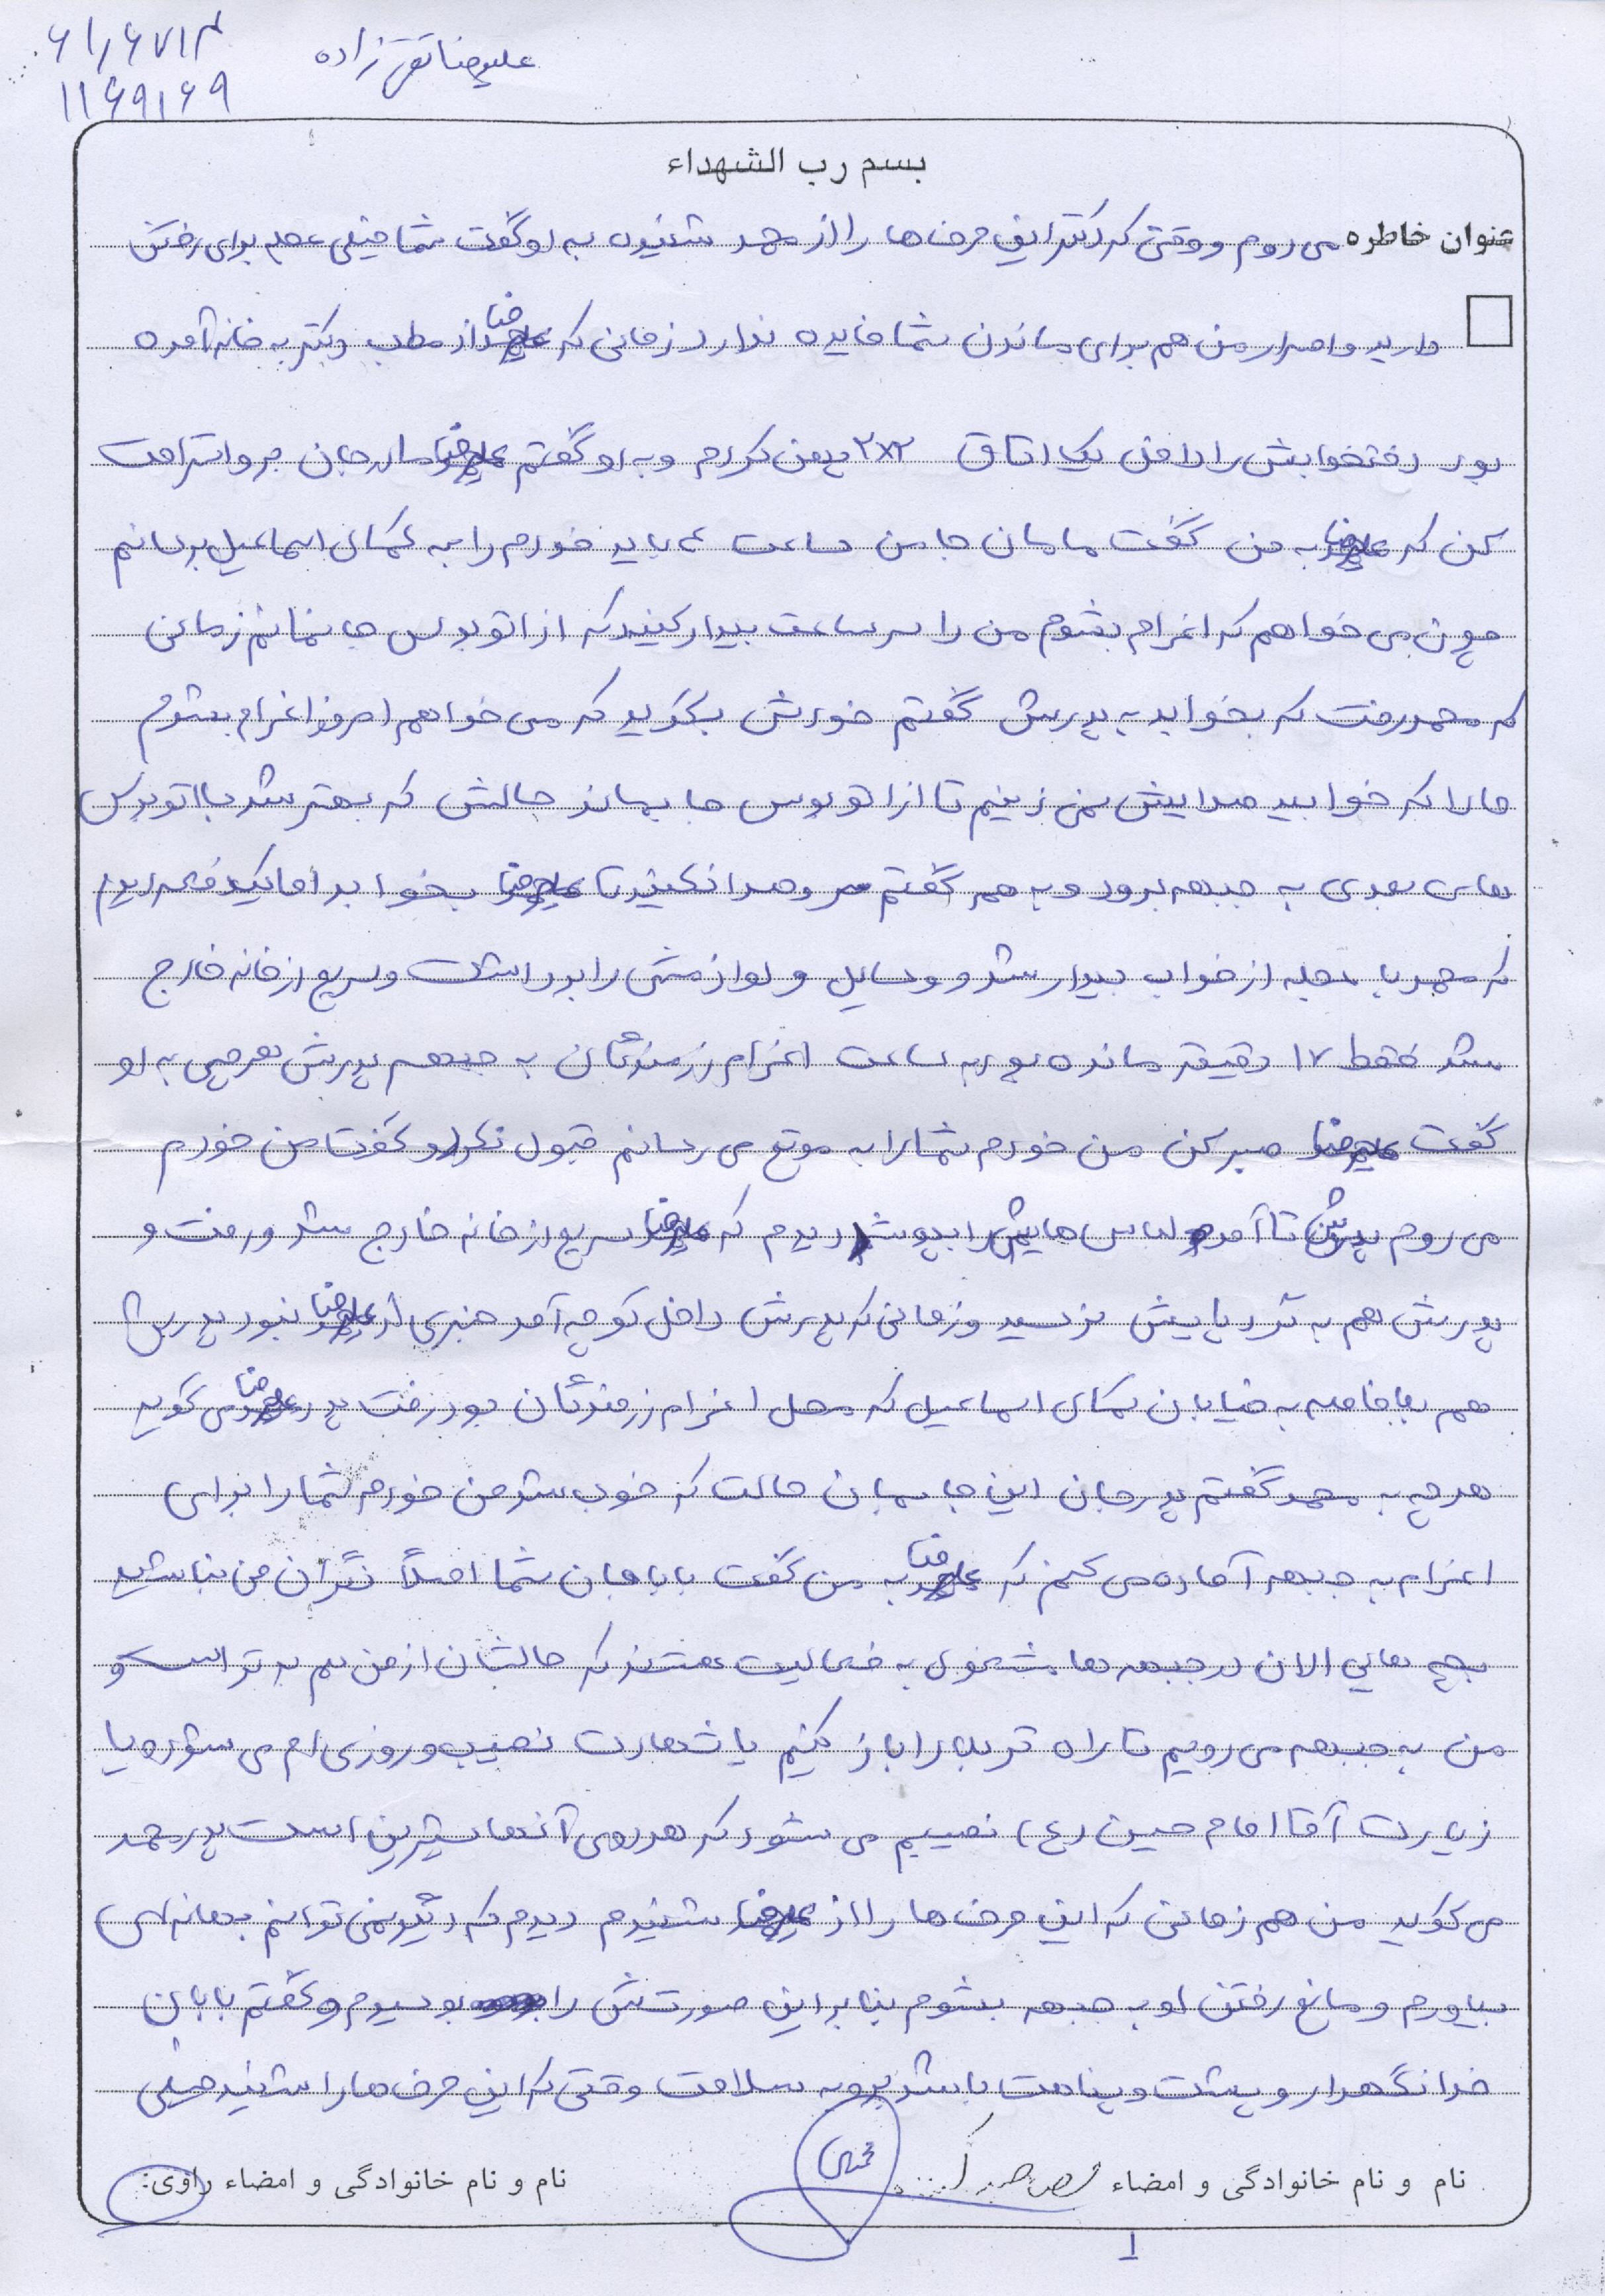 علیرضا تقی زاده
۶۱۸۶۷۱۳
۱۱۶۹۱۶۹
بسم رب الشهداء
عنوان خاطره می روم و وقتی که دکتر این حرف ها را از محمد شنیدن به او گفت شما خیلی عجله برای رفتن
دارید و اصرار من هم برای ماندن شما فایده ندارد زمانی که علیرضا از مطب دکتر به خانه آمده
بود رختخوابش را داخل یک اتاق ۲x۲ پهن کردم و به او گفتم علیرضا مادر جان برو استراحت
کن که علیرضا به من گفت مامان جان من ساعت ۴ باید خودم را به کمال اسماعیل برسانم
چون می خواهم که اعزام بشوم من را سر ساعت بیدار کنید که از اتوبوس جا نمانم زمانی
که محمد رفت که بخوابد به پدرش گفتم خودش بگوید که می خواهم امروز اعزام بشوم
حالا که خوابید صدایش نمی زنیم تا از اتوبوس جا بماند حالش که بهتر شد با اتوبوس
های بعدی به جبهه برود و به هم گفتم سر و صدا نکنید تا علیرضا بخوابد اما یکدفعه دیدم
که محمد با عجله از خواب بیدار شد و وسایل و لوازمش را برداشت و سریع از خانه خارج
شد فقط ۱۷ دقیقه مانده بود به ساعت اعزام رزمندگان به جبهه پدرش هرچی به او
گفت علیرضا صبر کن من خودم شما را به موقع می رسانم قبول نکرد و گفت من خودم
می روم پدرش تا آمد لباس هایش را بپوشد دیدم که علیرضا سریع از خانه خارج شد و رفت و
پدرش هم به گرد پایش نرسید و زمانی که پدرش داخل کوچه آمد خبری از علیرضا نبود پدرش
هم بلافاصله به خیابان کمال اسماعیل که محل اعزام رزمندگان بود رفت پدر علیرضا می گوید
هرچه به محمد گفتم پدر جان این جا بمان حالت که خوب شد من خودم شما را برای
اعزام به جبهه آماده می کنم که علیرضا به من گفت بابا جان شما اصلاً نگران من نباشید
بچه هایی الان در جبهه ها مشغول به فعالیت هستند که حالشان از من هم بدتر است و
من به جبهه می رویم تا راه کربلا را باز کنیم یا شهادت نصیب و روزی ام می شود یا
زیارت آقا امام حسین (ع) نصیبم می شود که هر دوی آنها شیرین است پدر محمد
می گوید من هم زمانی که این حرف ها را از علیرضا شنیدم دیدم که دیگر نمی توانم بهانه ای
بیاورم و مانع رفتن او به جبهه بشوم بنابراین صورتش را بوسیدم و گفتم بابا جان
خدا نگهدار و پشت و پناهت باشد برو به سلامت وقتی که این حرف ها را شنید خیلی
نام و نام خانوادگی و امضاء
نام و نام خانوادگی و امضاء راوی:
۱